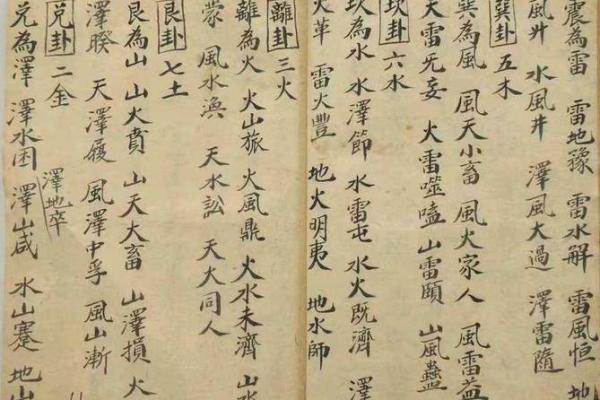 震為雷 雷地豫 雷水解 雷風恒 地
風升 水風井 澤風大過 澤雷隨
巽卦 五木
巽為風 風天小畜 風火家人 風雷益
天雷无妄 火雷噬嗑 山雷頤 山風蠱
坎卦 六水
坎為水 水澤節 水雷屯 水火既濟 澤
火革 雷火豐 地火明夷 地水師
離卦 三火
離為火 火山旅 火風鼎 火水未濟 山水
蒙 風水渙 天水訟 天火同人
艮卦 七土
艮為山 山火賁 山天大畜 山澤損 火
澤睽 天澤履 風澤中孚 風山漸
兌卦 二金
澤地卒
兌為澤 澤水困 澤山咸 水山蹇 地山